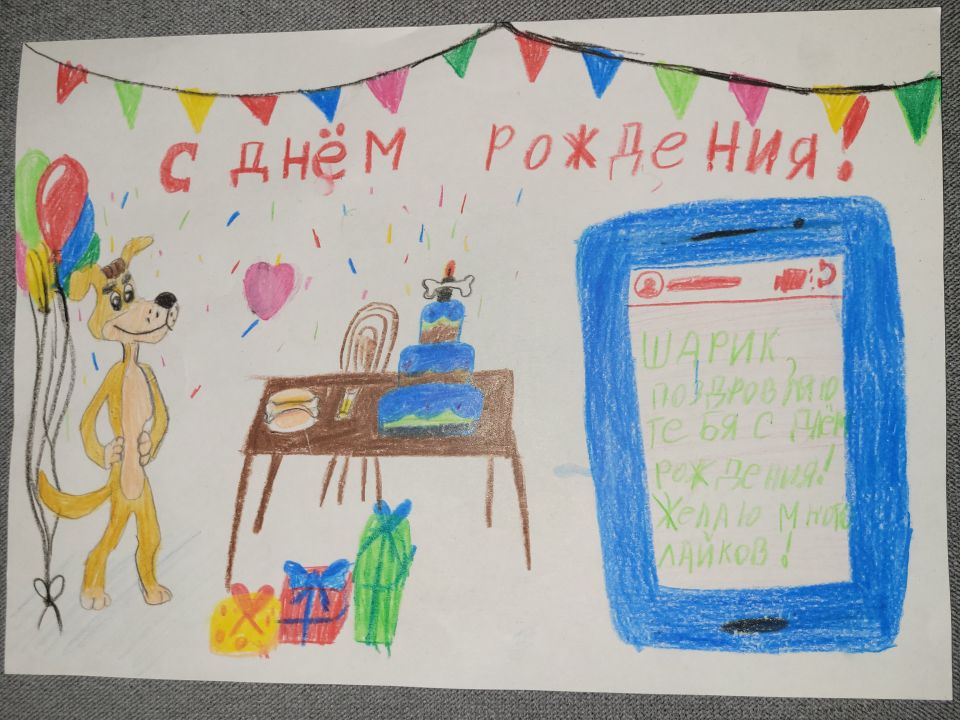 С ДНЁМ РОЖДЕНИЯ!
ШАРИК,
ПОЗДРОВЛЯЮ
ТЕБЯ С ДНЁМ
РОЖДЕНИЯ!
ЖЕЛАЮ МНОГО
ЛАЙКОВ!